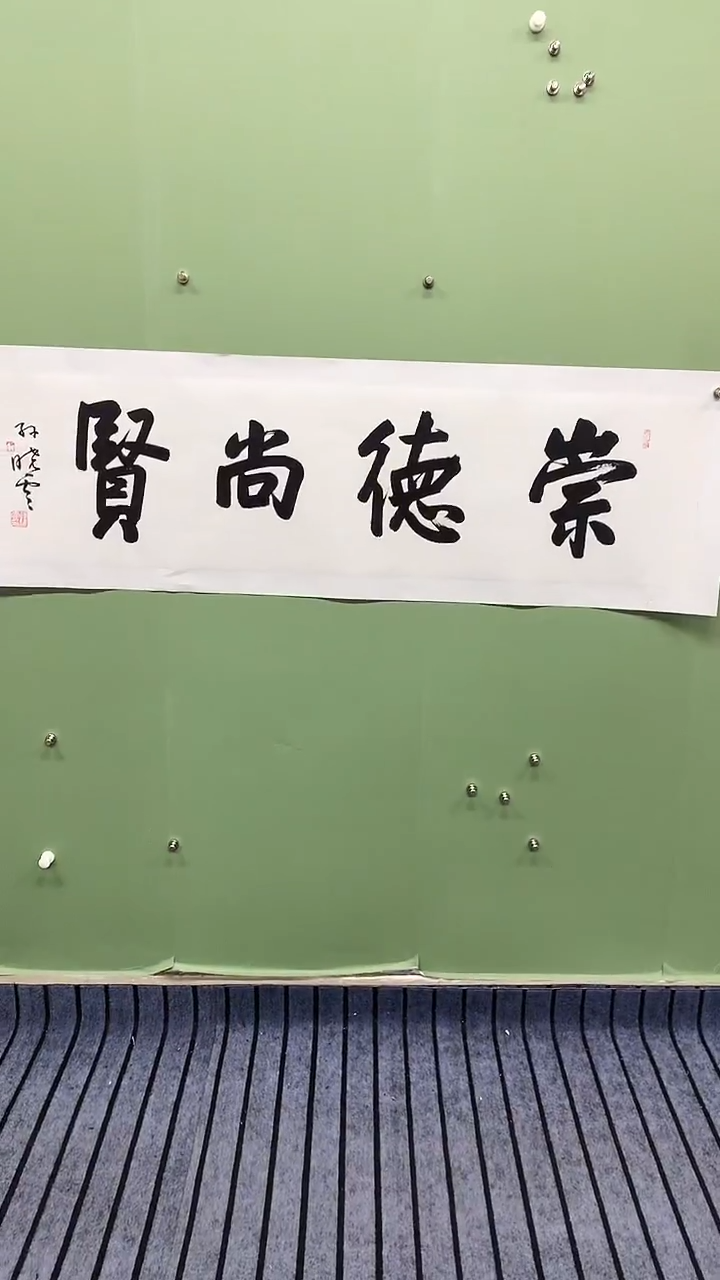 崇德尚賢
孙晓雲